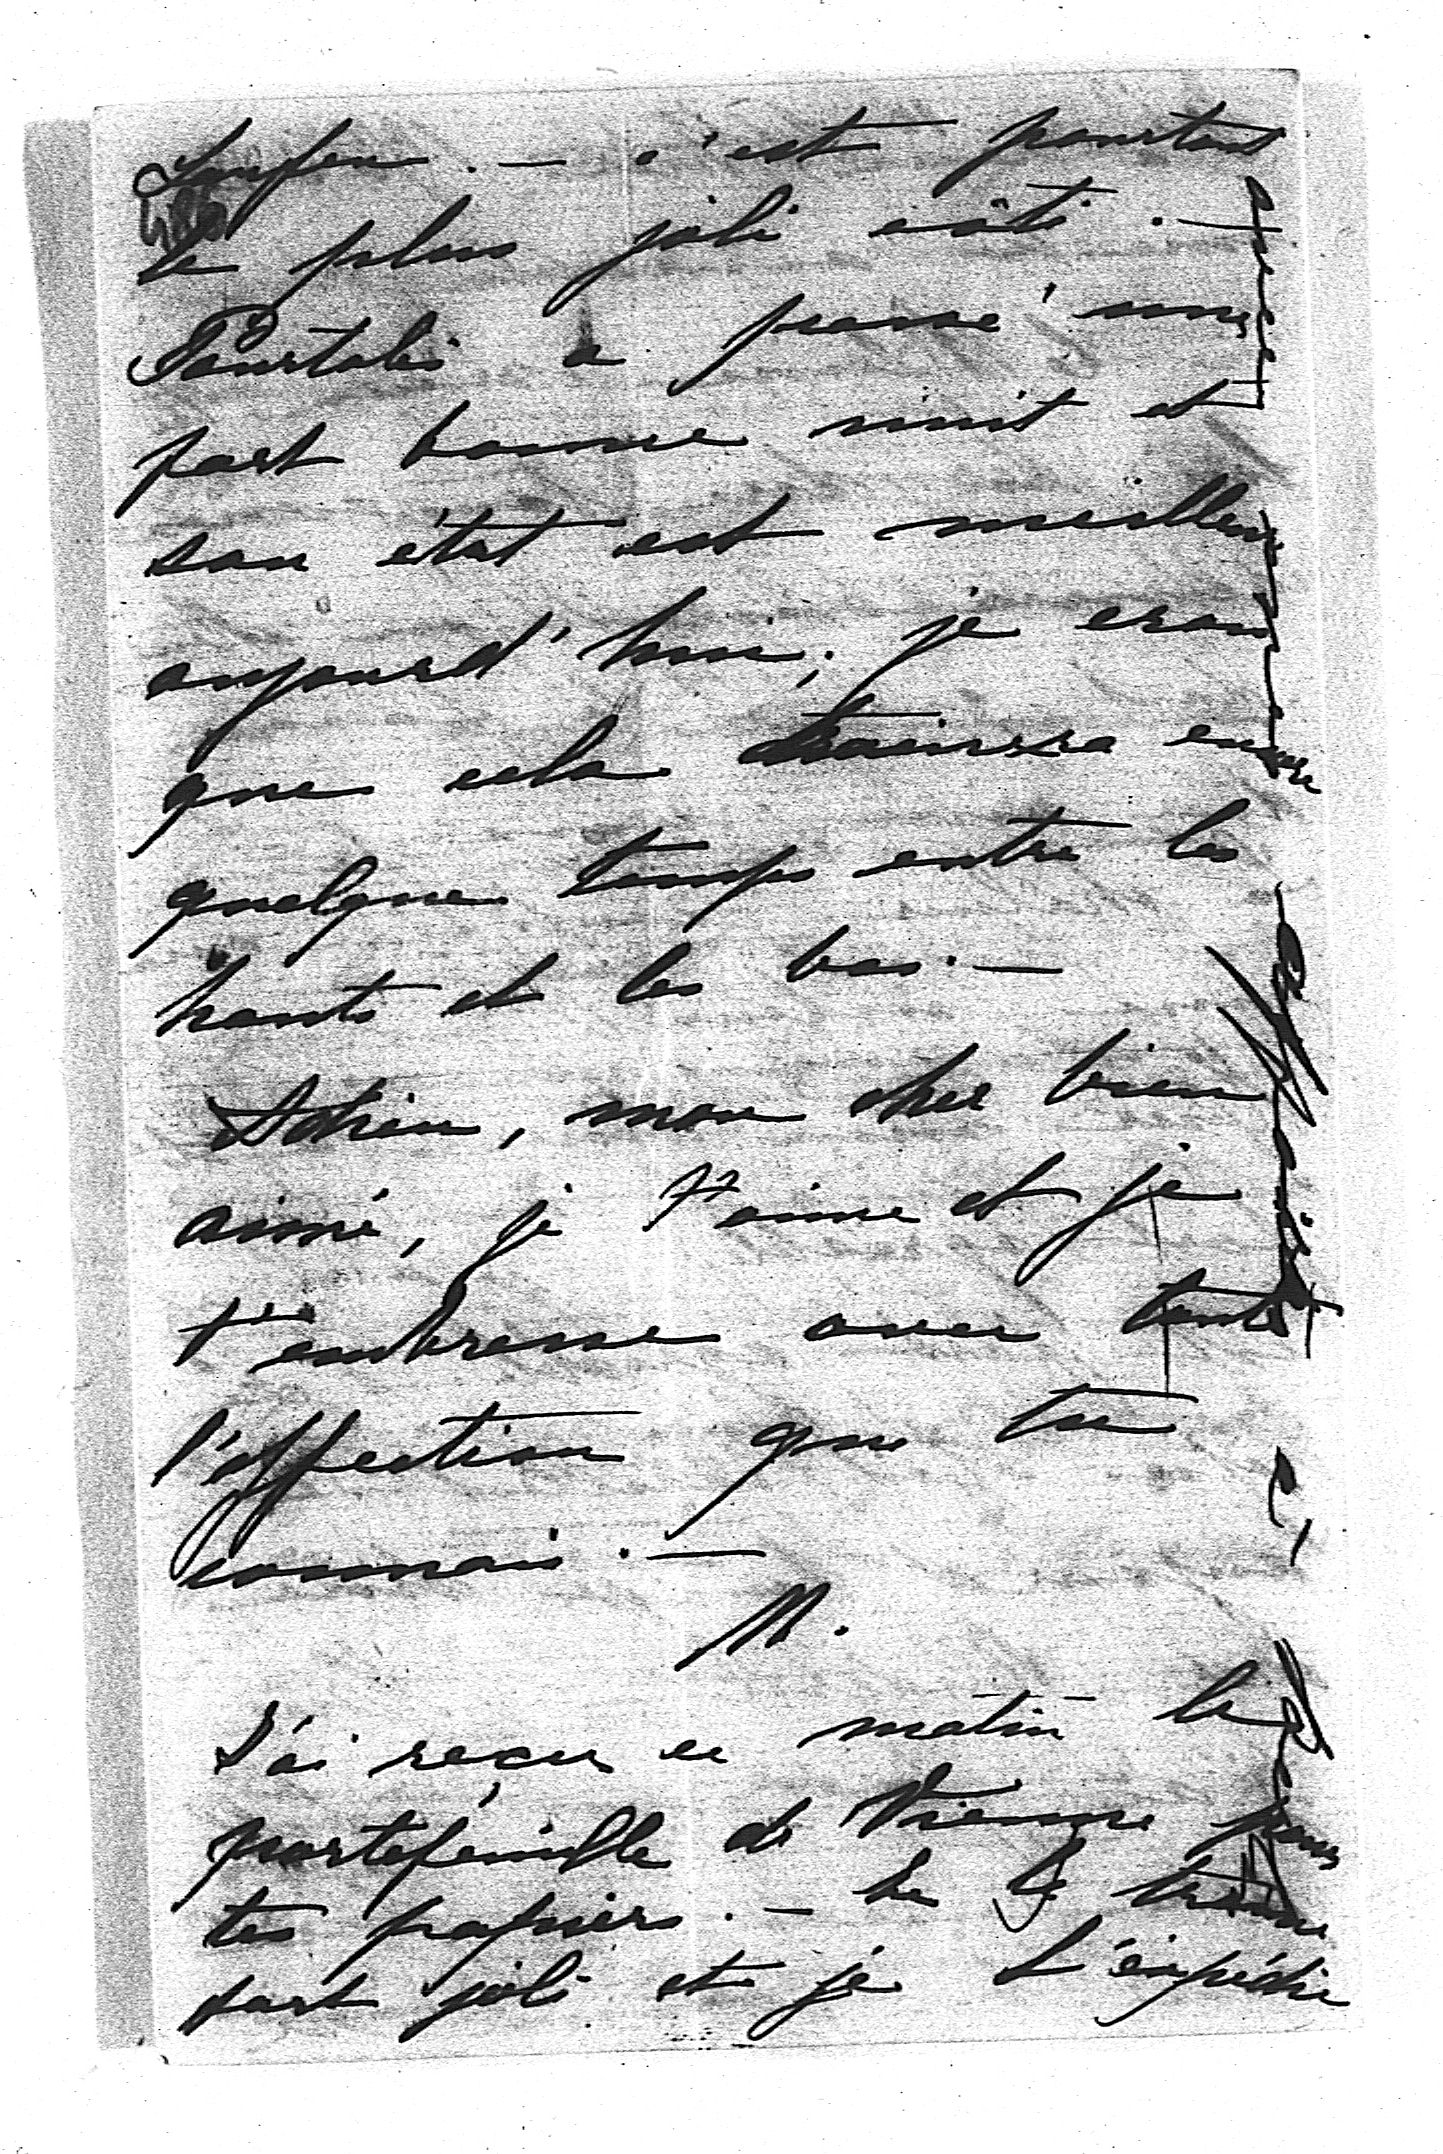 Laufen. — c'est pourtant
le plus joli côté. —
Pourtalès a passé une
fort bonne nuit et
son état est meilleur
aujourd'hui; je crois
que cela trainera encore
quelque temps entre les
hauts et les bas. —
Adieu, mon cher bien
aimé, je t'aime et je
t'embrasse avec toute
l'affection que tu
connais. —
M.
J'ai reçu ce matin le
portefeuille de Vienne pour
tes papiers. — Je le trouve
fort joli et je t'expédie